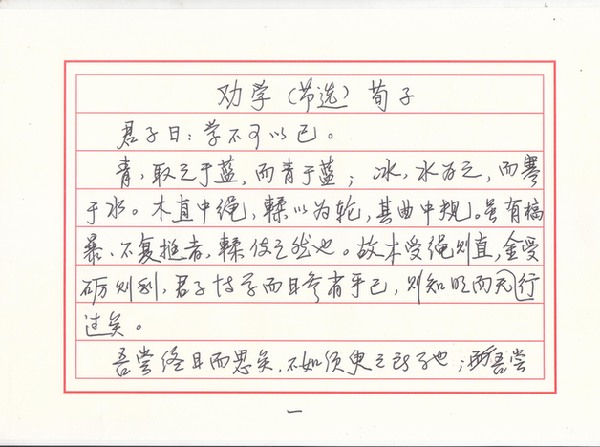 劝学（节选）荀子
君子曰：学不可以已。
青，取之于蓝，而青于蓝；冰，水为之，而寒
于水。木直中绳，輮以为轮，其曲中规。虽有槁
暴、不复挺者，輮使之然也。故木受绳则直，金受
砺则利，君子博学而日参省乎己，则知明而无行
过矣。
吾尝终日而思矣，不如须臾之所学也；吾尝
一